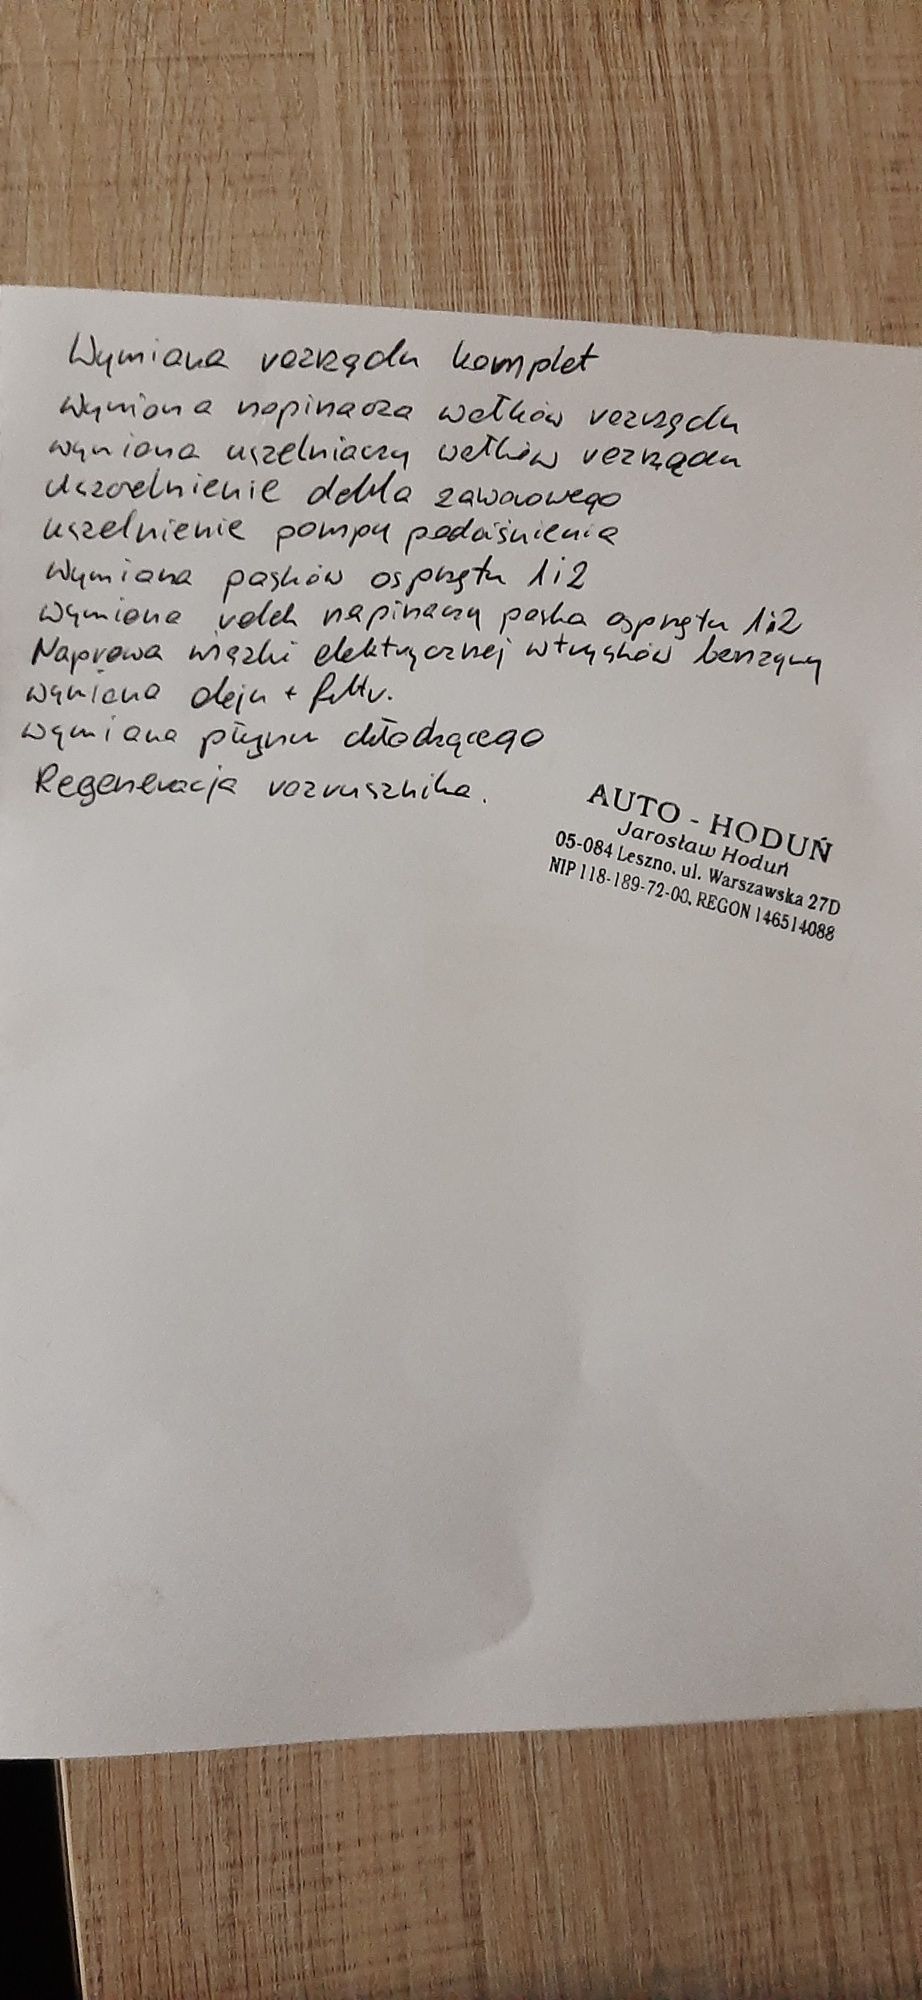 Wymiana rozrządu komplet
wymiana napinacza wałków rozrządu
wymiana uszelniaczy wałków rozrządu
Uszczelnienie dekla zaworowego
uszelnienie pompy podciśnienia
Wymiana pasków osprzętu 1i2
wymiana rolek napinaczy paska osprzętu 1i2
Naprawa wiązki elektrycznej wtrysków benzyny
wymiana oleju + filtr.
wymiana płynu chłodzącego
Regeneracja rozrusznika.
AUTO - HODUŃ
Jarosław Hoduń
05-084 Leszno, ul. Warszawska 27D
NIP 118-189-72-00, REGON 146514088